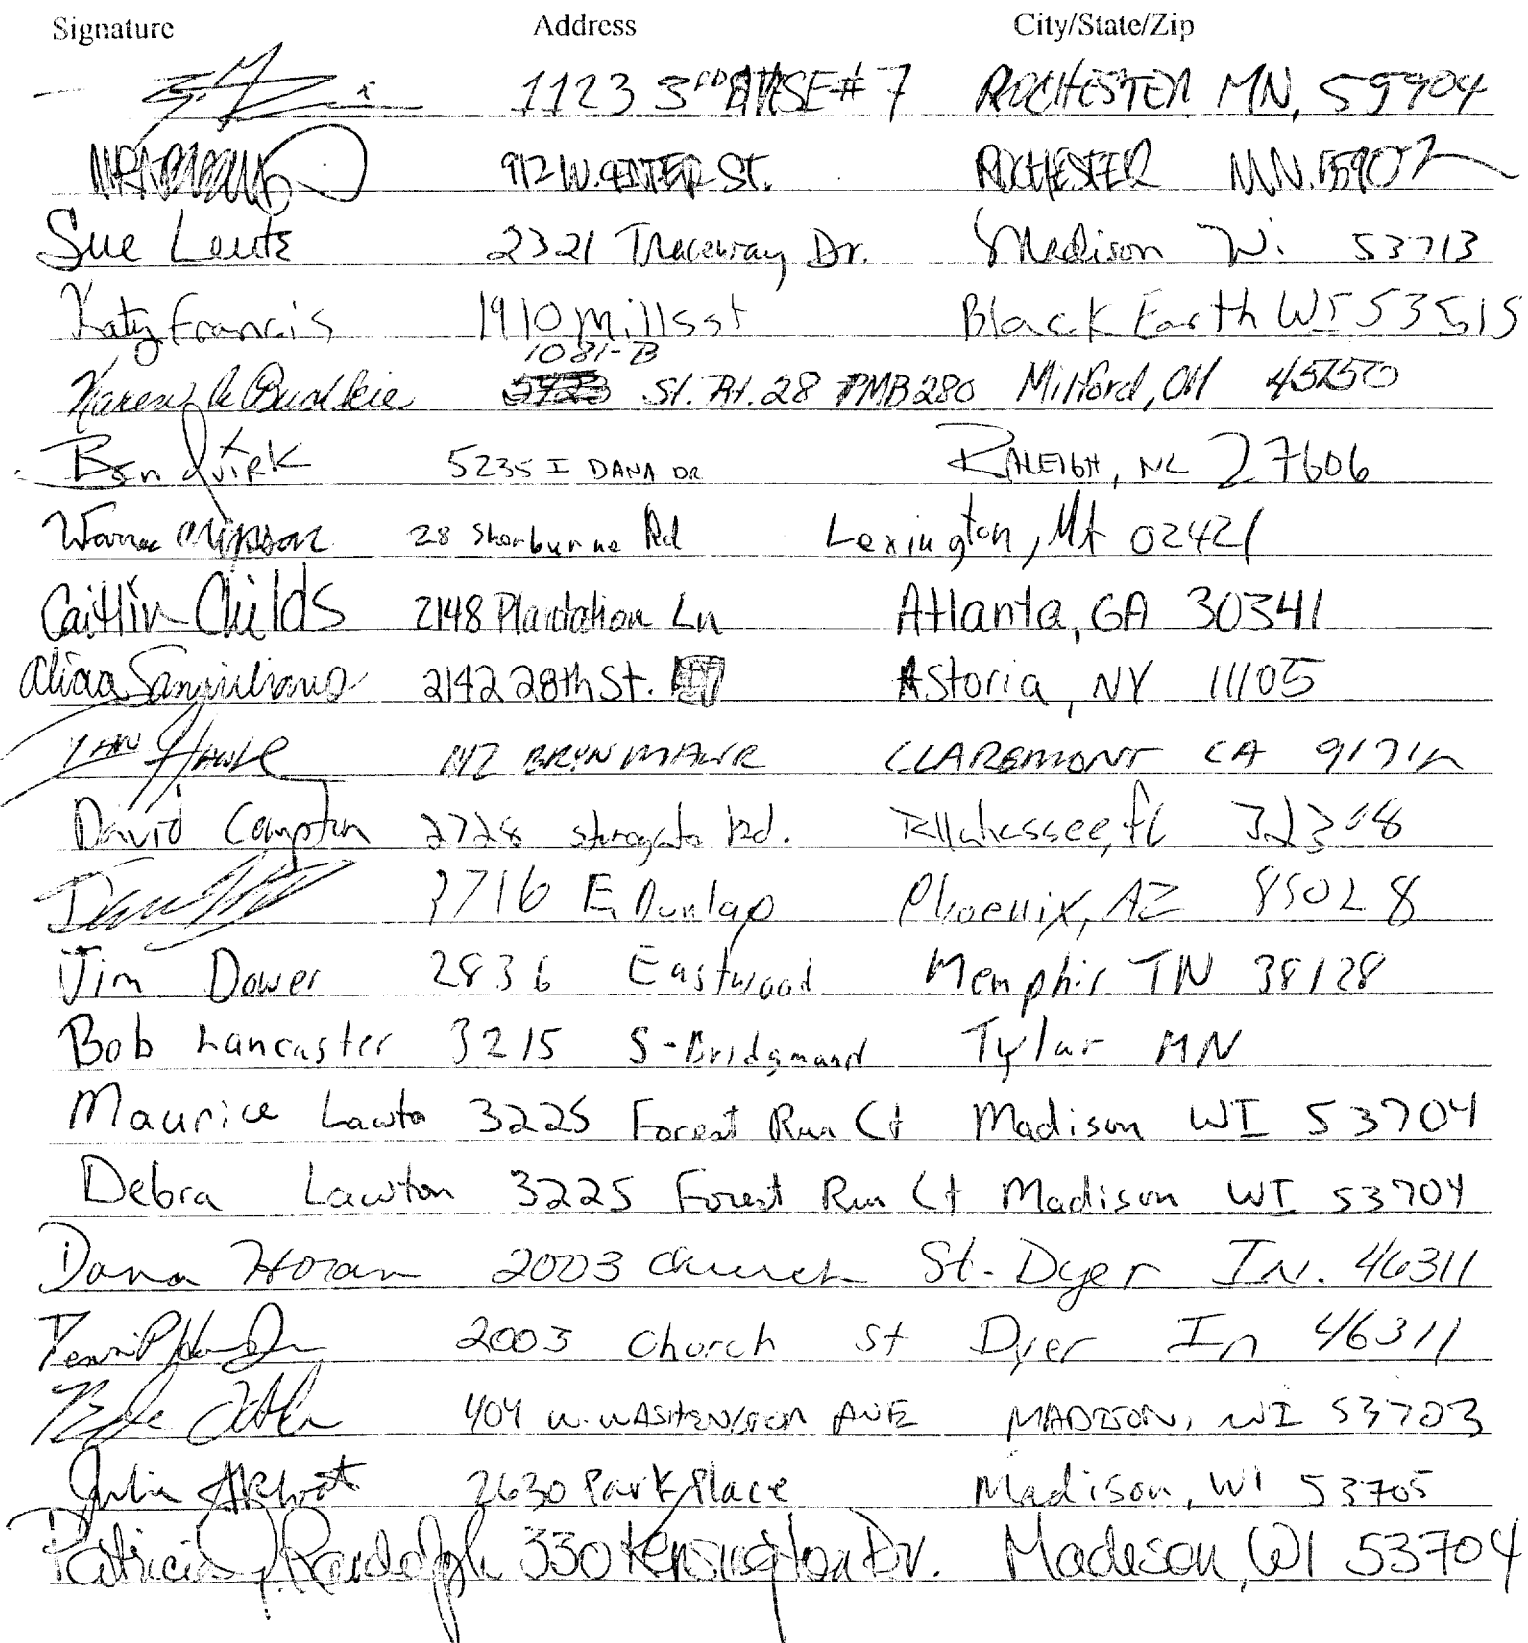 Signature Address City/State/Zip
1123 3RD AVE SE #7 ROCHESTER MN, 55904
912 W. CENTER ST. ROCHESTER MN. 55902
Sue Leutz 2321 Traceway Dr. Madison Wi 53713
Katy Francis 1910 Mills st Black Earth WI 53515
1081-B
Karen St. Rt. 28 PMB 280 Milford, OH 45150
Ben Quirk 5235 I DANA DR RALEIGH, NC 27606
28 Sherburne Rd Lexington, MA 02421
Caitlin Childs 2148 Plantation Ln Atlanta, GA 30341
Alicia 2142 28th St. Astoria, NY 11105
IAN BRYN MAWR CLAREMONT CA
David Compton 2728 Rd. Tallahassee, fl 32308
3716 E Dunlap Phoenix, AZ 85028
Jim Dower 2836 Eastwood Memphis TN 38128
Bob Lancaster 3215 Tylar MN
Maurice Lawto 3225 Forest Run Ct Madison WI 53704
Debra Lawton 3225 Forest Run Ct Madison WI 53704
Dana Horan 2003 Church St. Dyer IN. 46311
2003 Church St Dyer In 46311
404 W. WASHINGTON AVE MADISON, WI 53703
Julia 2630 Park Place Madison, WI 53705
Patricia J. Randolph 330 Kensington Dr. Madison, WI 53704